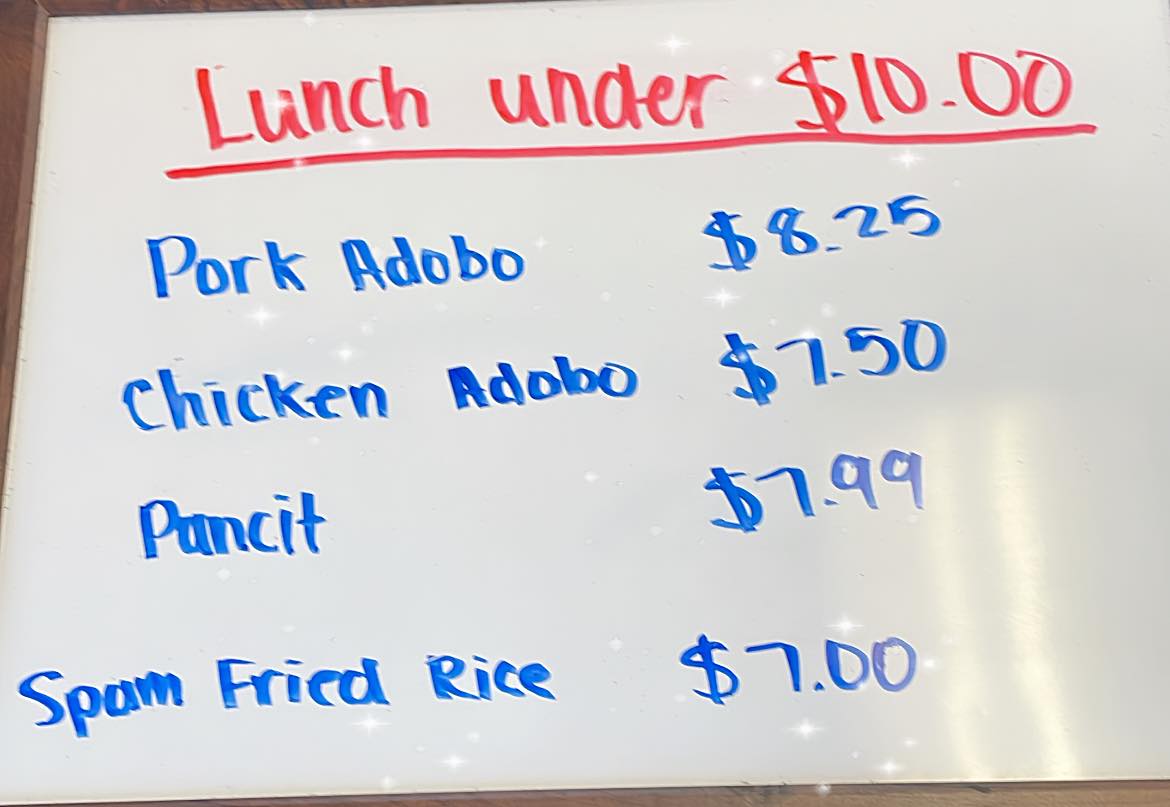 Lunch under $10.00
Pork Adobo $8.25
Chicken Adobo $7.50
Pancit $7.99
Spam Fried Rice $7.00